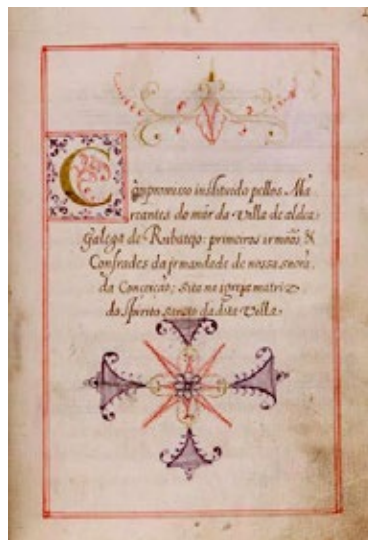 Compromisso instituido pellos Ma
reantes do mór da Villa de aldea
Galega de Rubatejo: primeiros irmãos &
Confrades da jrmandade de nossa snora
da Conceição; sita na igreja matriz
do spirito sancto da dita Villa.